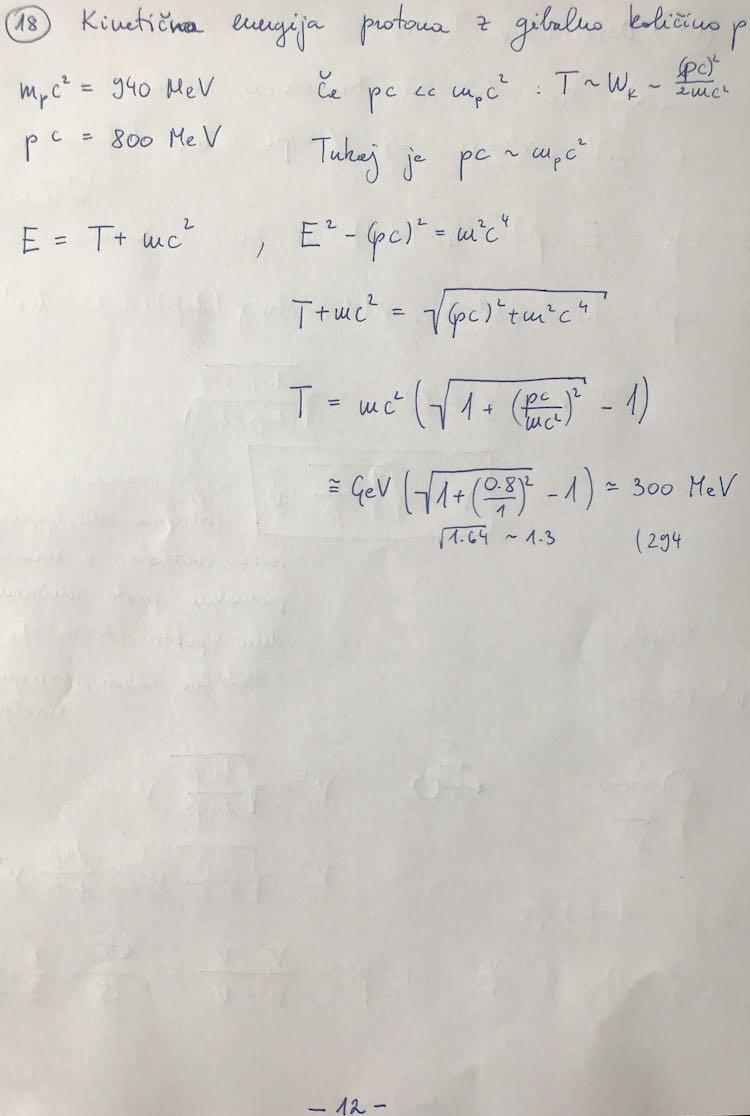 18 Kinetična energija protona z gibalno količino p
m_p c² = 940 MeV Če pc << m_p c² : T ~ W_K ~ (pc)²/2mc²
pc = 800 MeV Tukaj je pc ~ m_p c²
E = T + mc² , E² - (pc)² = m²c⁴
T + mc² = √((pc)² + m²c⁴)
T = mc² (√(1 + (pc/mc²)²) - 1)
≅ GeV (√(1 + (0.8/1)²) - 1) ≃ 300 MeV
√1.64 ~ 1.3 (294
- 12 -